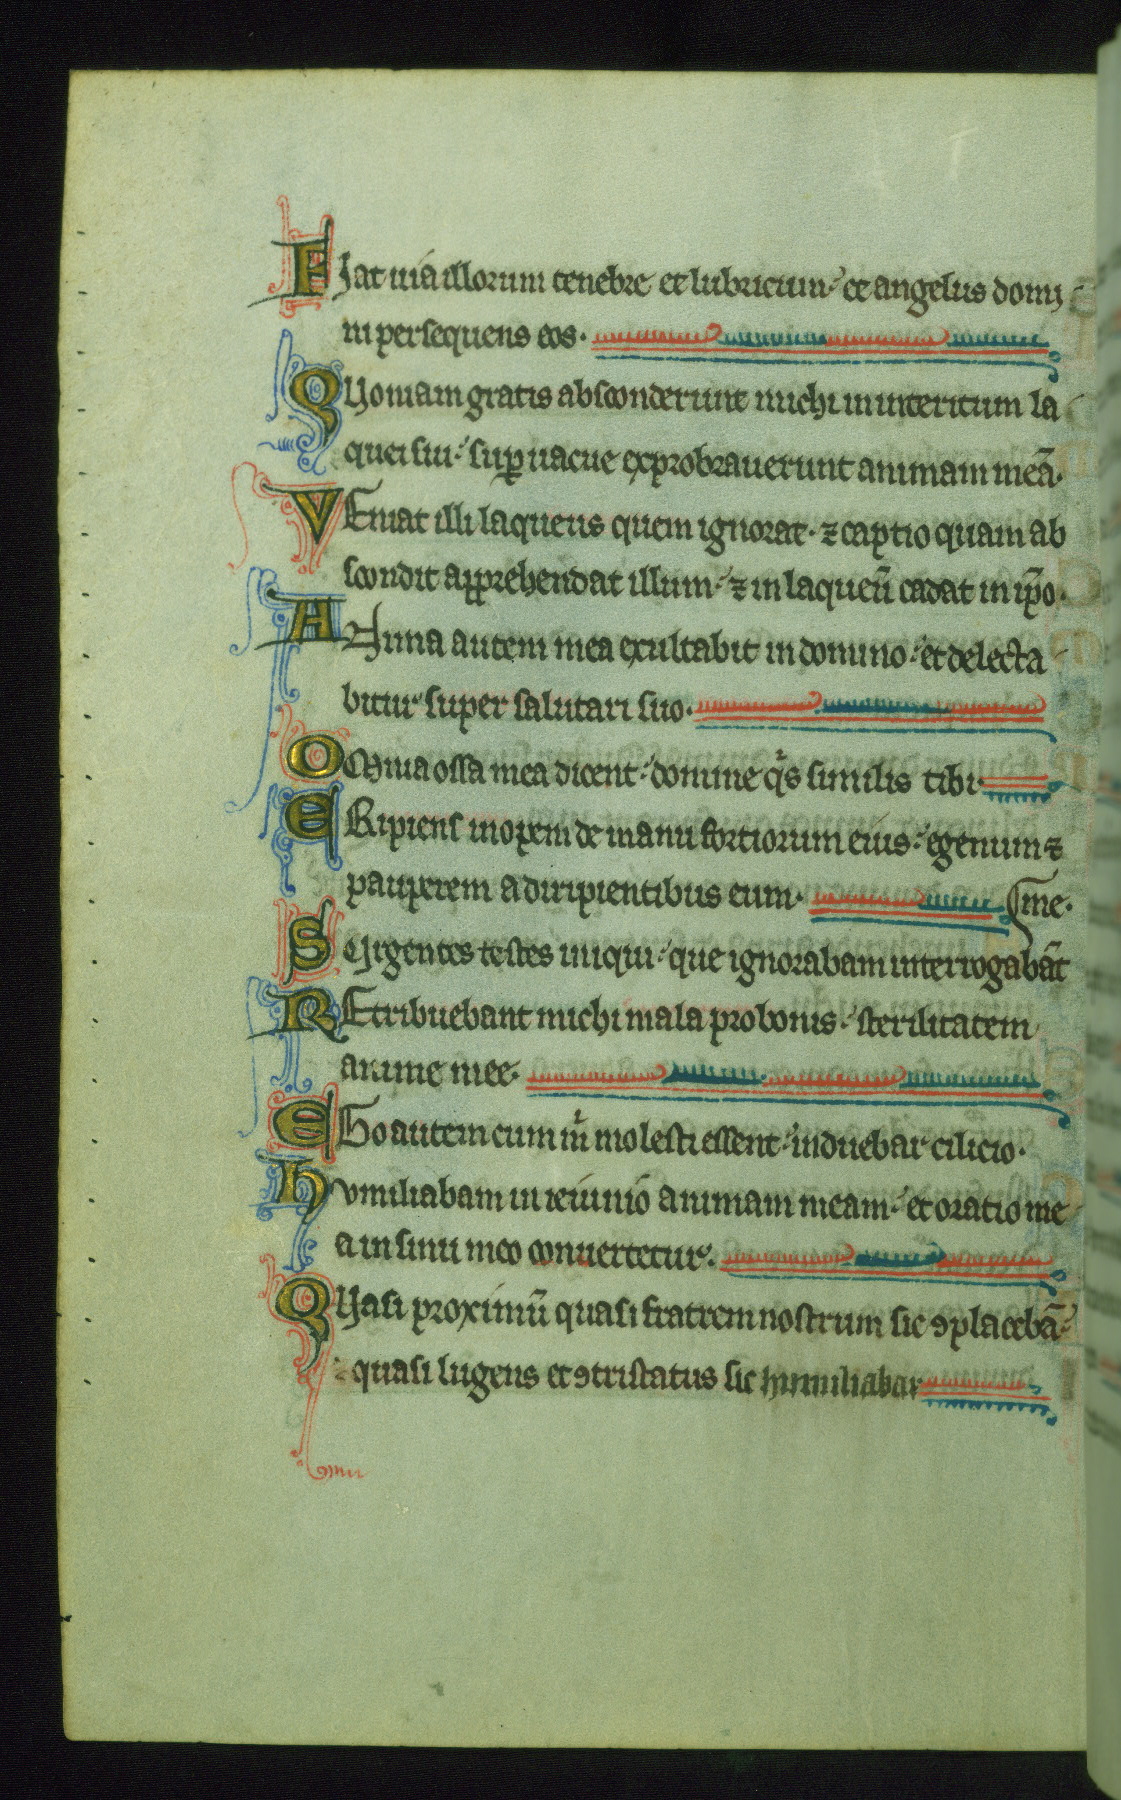 FIat uia illorum tenebre et lubricum et angelus domi
ni persequens eos.
QUoniam gratis absconderunt michi in interitum la
quei sui sup̱uacue exprobrauerunt animam meā.
VEniat illi laqueus quem ignorat. ⁊ captio quam ab
scondit apprehendat illum ⁊ in laqueū cadat in ip̄o.
ANima autem mea exultabit in domino et delecta
bitur super salutari suo.
OMnia ossa mea dicent domine qͥs similis tibi
ERipiens inopem de manu fortiorum eius egenum ⁊
pauperem a diripientibus eum. me.
SUrgentes testes iniqui que ignorabam interrogabāt
REtribuebant michi mala pro bonis sterilitatem
anime mee.
EGo autem cum mͥ molesti essent induebar cilicio.
HVmiliabam in ieiunio animam meam et oratio me
a in sinu meo conuertetur.
QUasi proximū quasi fratrem nostrum sic ꝯplacebā
quasi lugens et ꝯtristatus sic humiliabar